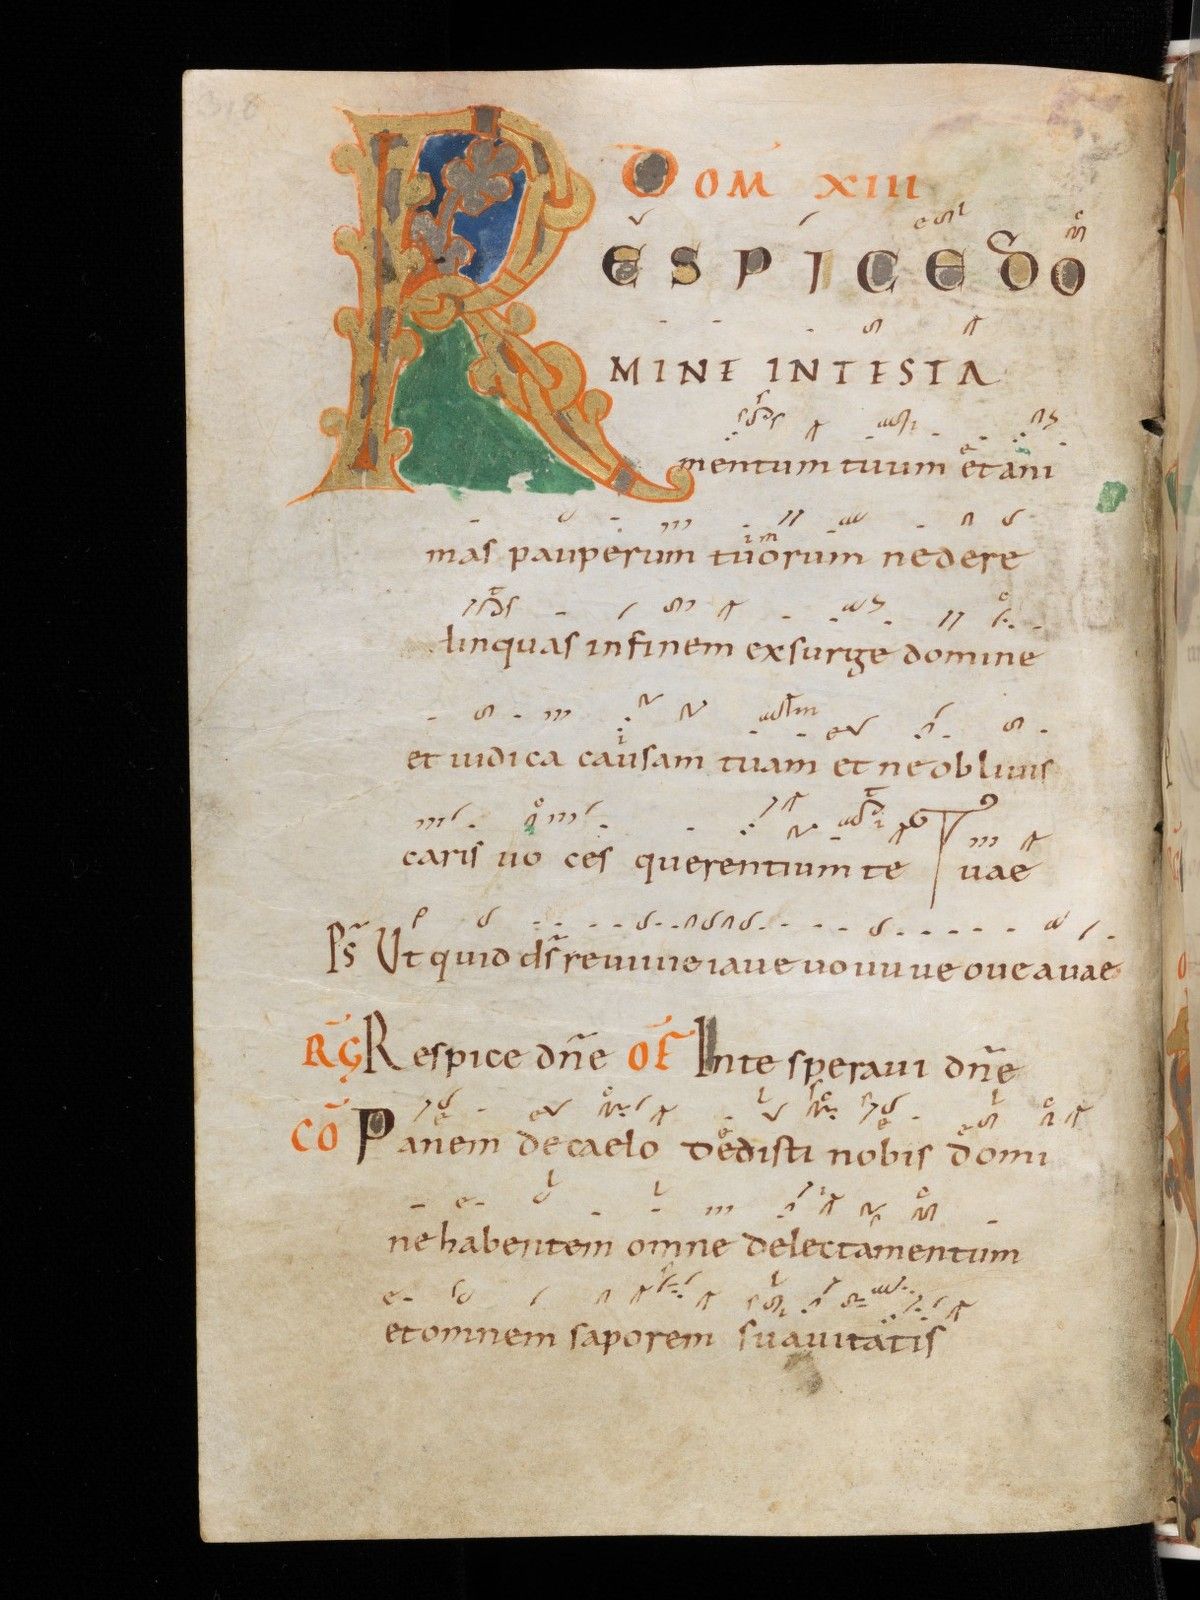 318
DOM̄ XIII
RESPICE DO
MINE IN TESTA
mentum tuum et ani
mas pauperum tuorum ne dere
linquas in finem exsurge domine
et iudica causam tuam et ne obliuis
caris uo ces querentium te uae
Ps̄ Ut quid ds̄ re uuue iaue uo uu ue oue a uae
R̄G Respice dn̄e OF̄ In te speraui dn̄e
CŌ Panem de caelo dedisti nobis domi
ne habentem omne delectamentum
et omnem saporem suauitatis